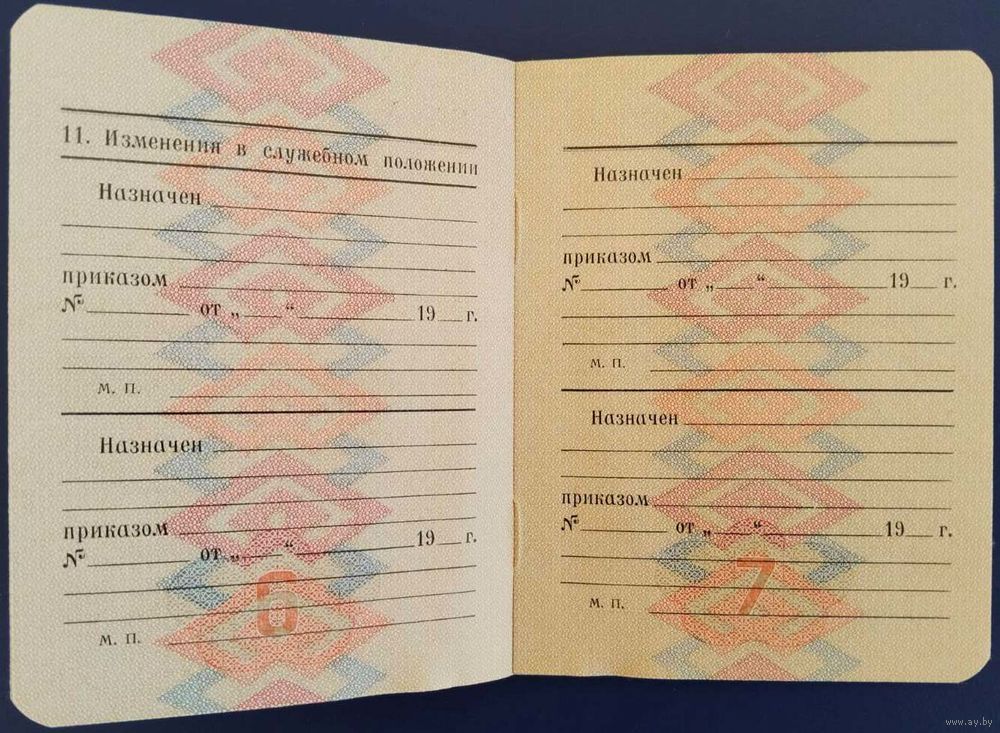 11. Изменения в служебном положении
Назначен
приказом
№ от „ “ 19 г.
м. п.
Назначен
приказом
№ от „ “ 19 г.
м. п.
6
Назначен
приказом
№ от „ “ 19 г.
м. п.
Назначен
приказом
№ от „ “ 19 г.
м. п.
7
www.ay.by